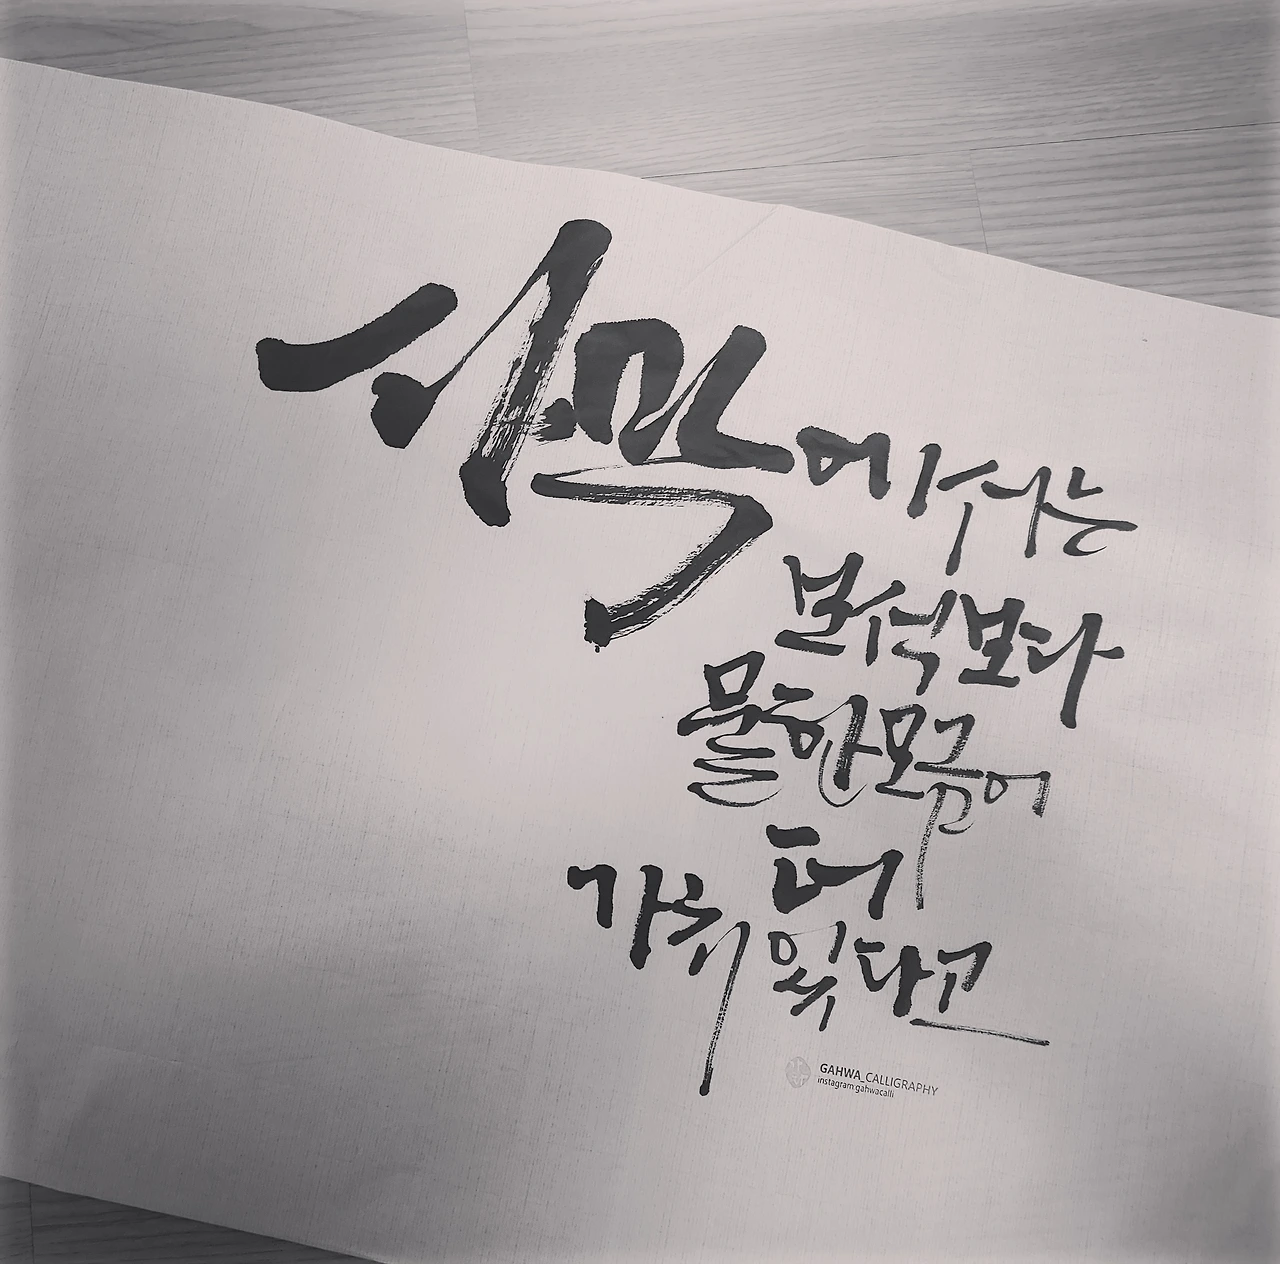 사막에서는
보석보다
물 한 모금이
더
가치 있다고
GAHWA_CALLIGRAPHY
instagram gahwacalli